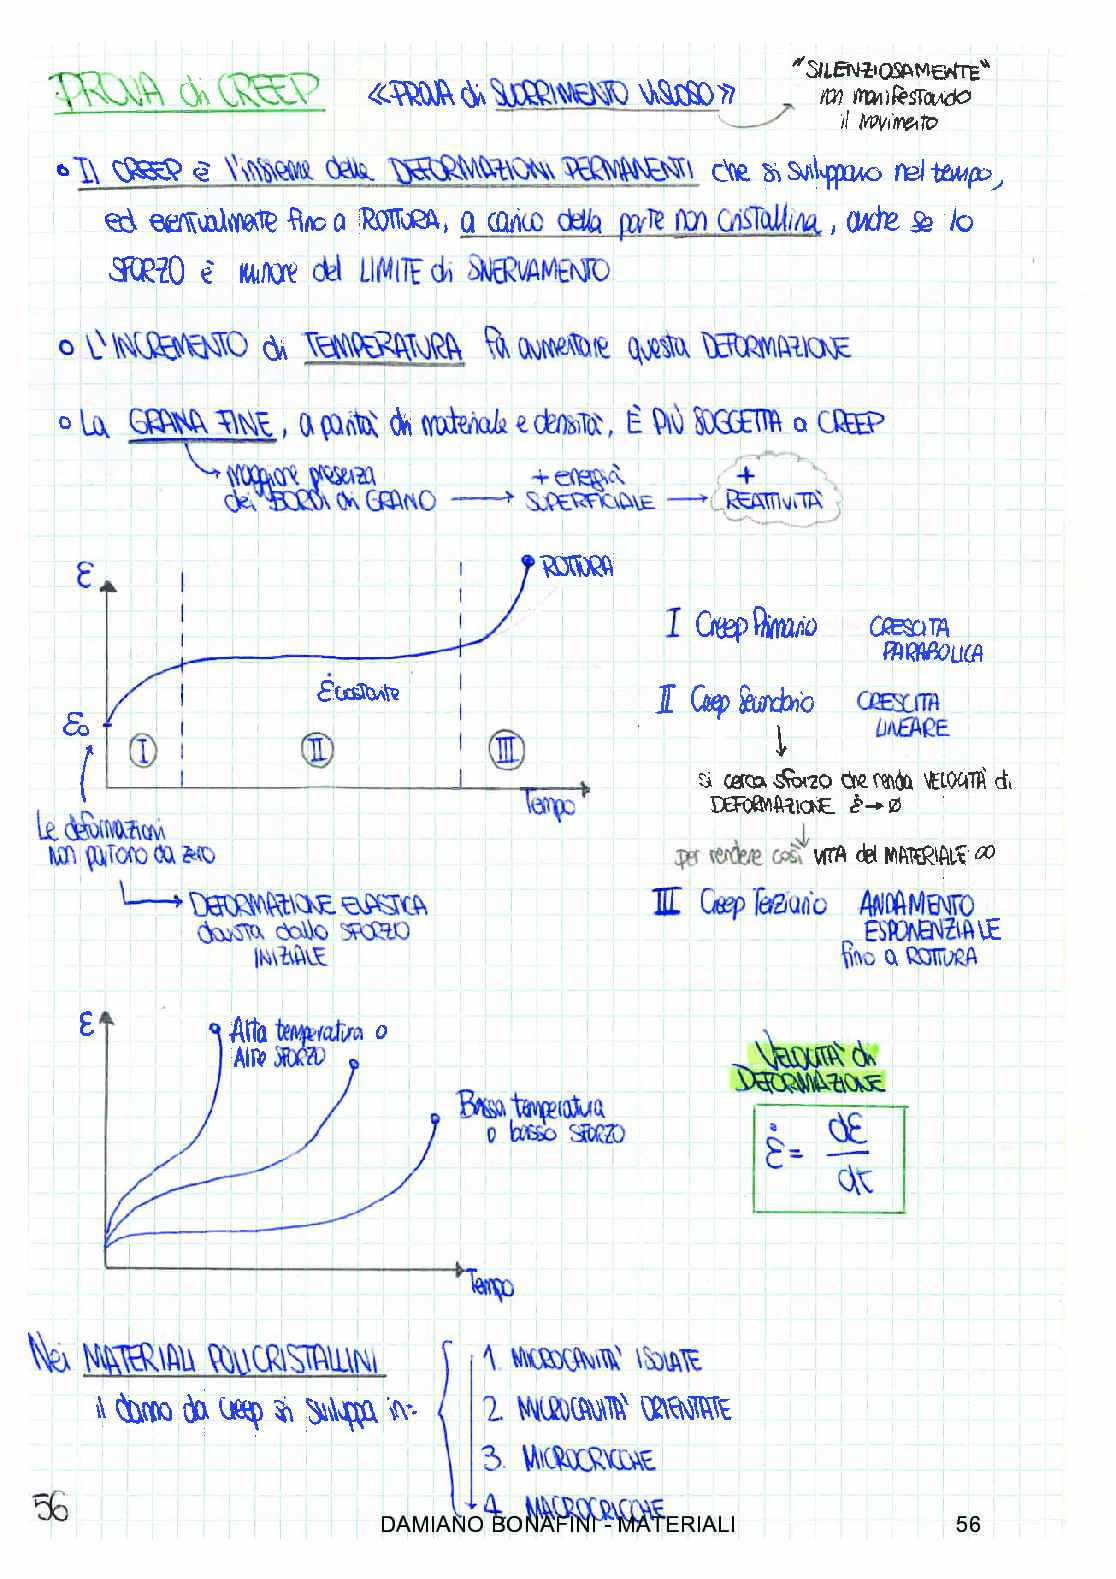 PROVA di CREEP
«PROVA di SCORRIMENTO VISCOSO»
"SILENZIOSAMENTE"
non manifestando
il movimento
Il CREEP è l'insieme delle DEFORMAZIONI PERMANENTI che si sviluppano nel tempo,
ed eventualmente fino a ROTTURA, a carico della parte non cristallina, anche se lo
SFORZO è minore del LIMITE di SNERVAMENTO
L'INCREMENTO di TEMPERATURA fa aumentare questa DEFORMAZIONE
La GRANA FINE, a parità di materiale e densità, È PIÙ SOGGETTA a CREEP
maggiore presenza
dei BORDI di GRANO → + energia SUPERFICIALE → + REATTIVITÀ
ε
ROTTURA
ε̇ costante
ε₀
I
II
III
Tempo
Le deformazioni
non partono da zero
DEFORMAZIONE ELASTICA
dovuta dallo SFORZO
INIZIALE
I Creep Primario CRESCITA
PARABOLICA
II Creep Secondario CRESCITA
LINEARE
si cerca sforzo che renda VELOCITÀ di
DEFORMAZIONE ε̇→ø
per rendere così VITA del MATERIALE ∞
III Creep Terziario ANDAMENTO
ESPONENZIALE
fino a ROTTURA
ε
Alta temperatura o
Alto SFORZO
Bassa temperatura
o basso SFORZO
Tempo
VELOCITÀ di
DEFORMAZIONE
ε̇ = dε
dt
Nei MATERIALI POLICRISTALLINI
il danno da Creep si sviluppa in:
1. MICROCAVITÀ ISOLATE
2. MICROCAVITÀ ORIENTATE
3. MICROCRICCHE
4. MACROCRICCHE
56
DAMIANO BONAFINI - MATERIALI
56